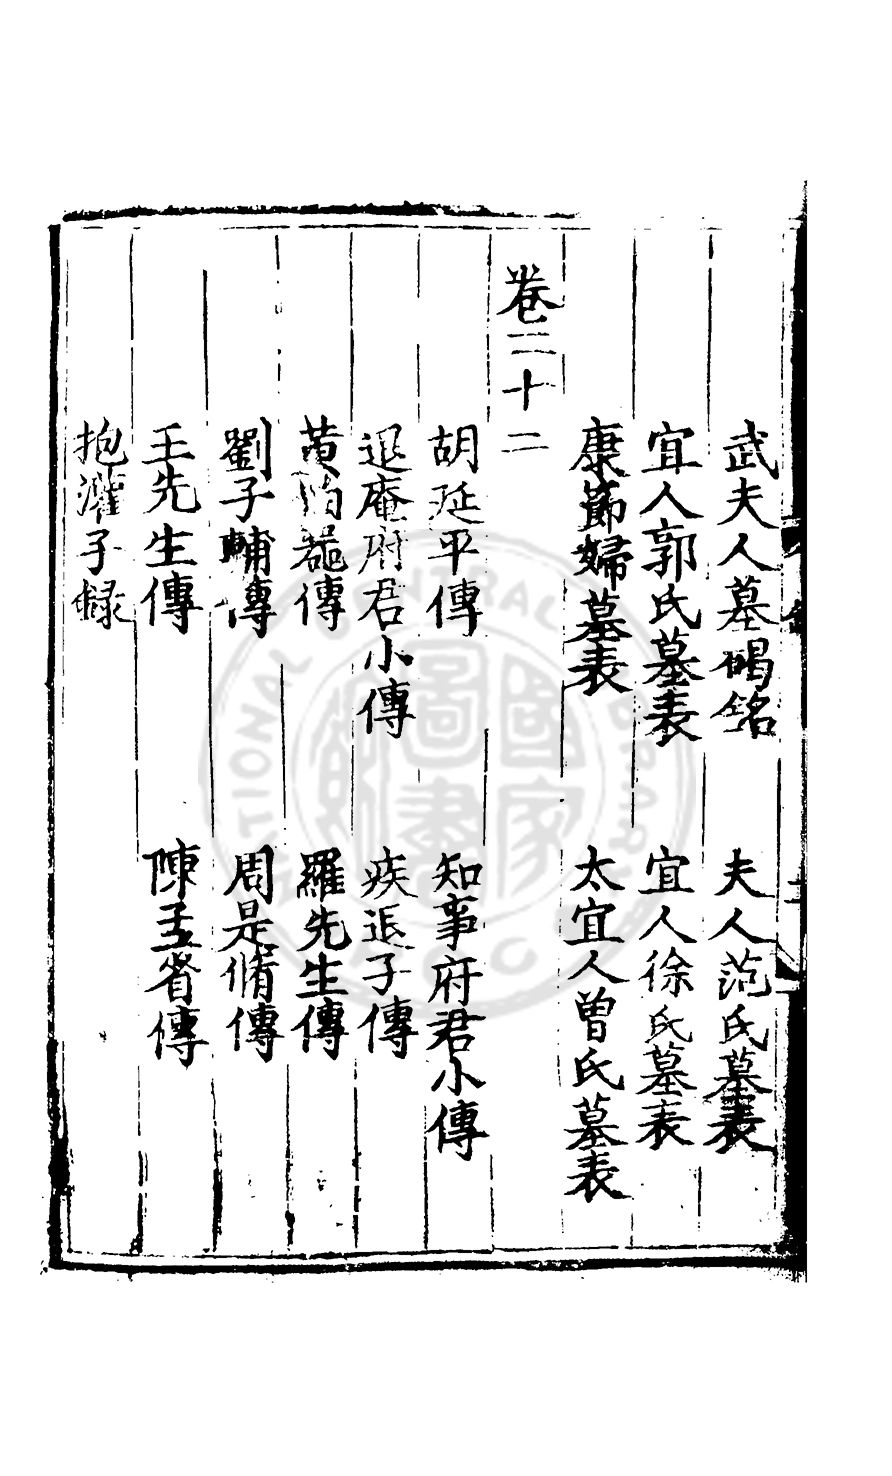 武夫人墓碣銘　夫人范氏墓表
宜人郭氏墓表　宜人徐氏墓表
康節婦墓表　太宜人曾氏墓表
卷二十二
胡延平傳　知事府君小傳
退庵府君小傳　疾退子傳
黃傳　羅先生傳
劉子輔傳　周是脩傳
王先生傳　陳孟省傳
抱灌子錄
國家圖書館
NATIONAL CENTRAL LIBRARY